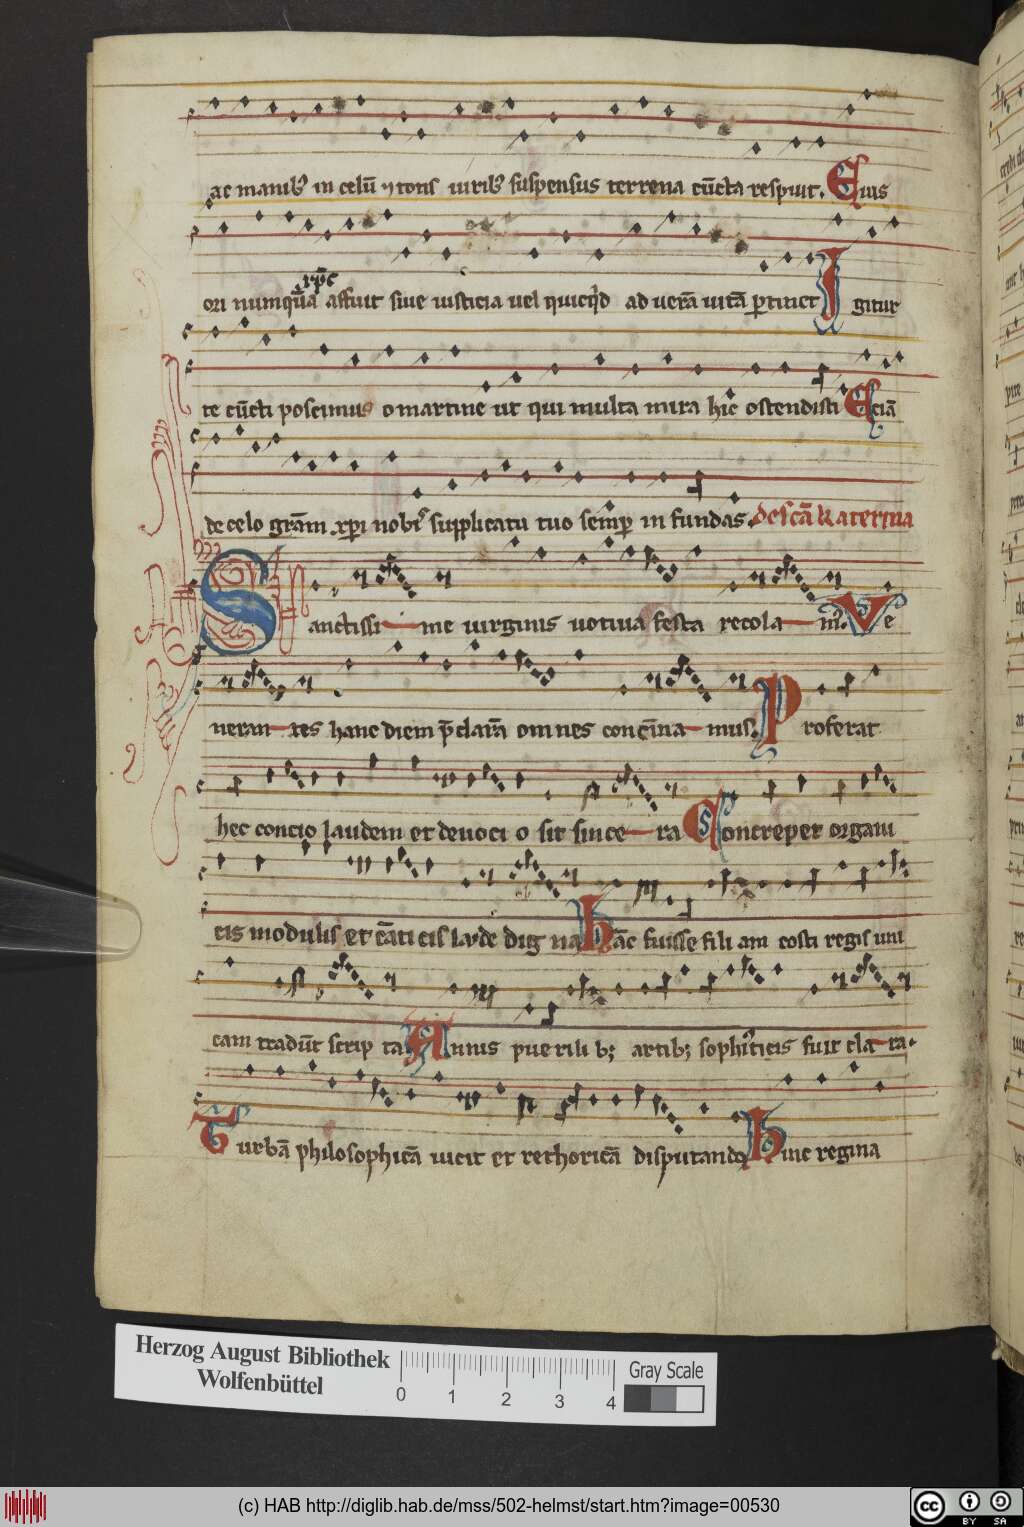 ac manib⁹ in celū ⁊ tons iurib⁹ suspensus terrena cūcta respuit. Eius
ori numquā xp̄c affuit siue iusticia uel quicq̇d ad uerā uitā ꝑtinet Igitur
te cūcti poscimus o martine ut qui multa mira hic ostendisti Eciā
de celo grām xp̄i nobis supplicatu tuo semꝑ in fundas. De scā Katerina
Sanctissi me uirginis uotiua festa recola m⁹. Ve
neran tes hanc diem p̄clarā omnes concīna mus. Proferat
hec concio laudem et deuoci o sit since ra Concrepet organi
cis modulis et cāti cis laude dig na Hāc fuisse fili am costi regis uni
cam tradūt scrip ta Annis puerili bꝫ artibꝫ sophisticis fuit cla ra.
Turbā philosophicā uicit et rethoricā disputando Hinc regina
Herzog August Bibliothek
Wolfenbüttel
0 1 2 3 4
Gray Scale
(c) HAB http://diglib.hab.de/mss/502-helmst/start.htm?image=00530
cc BY SA